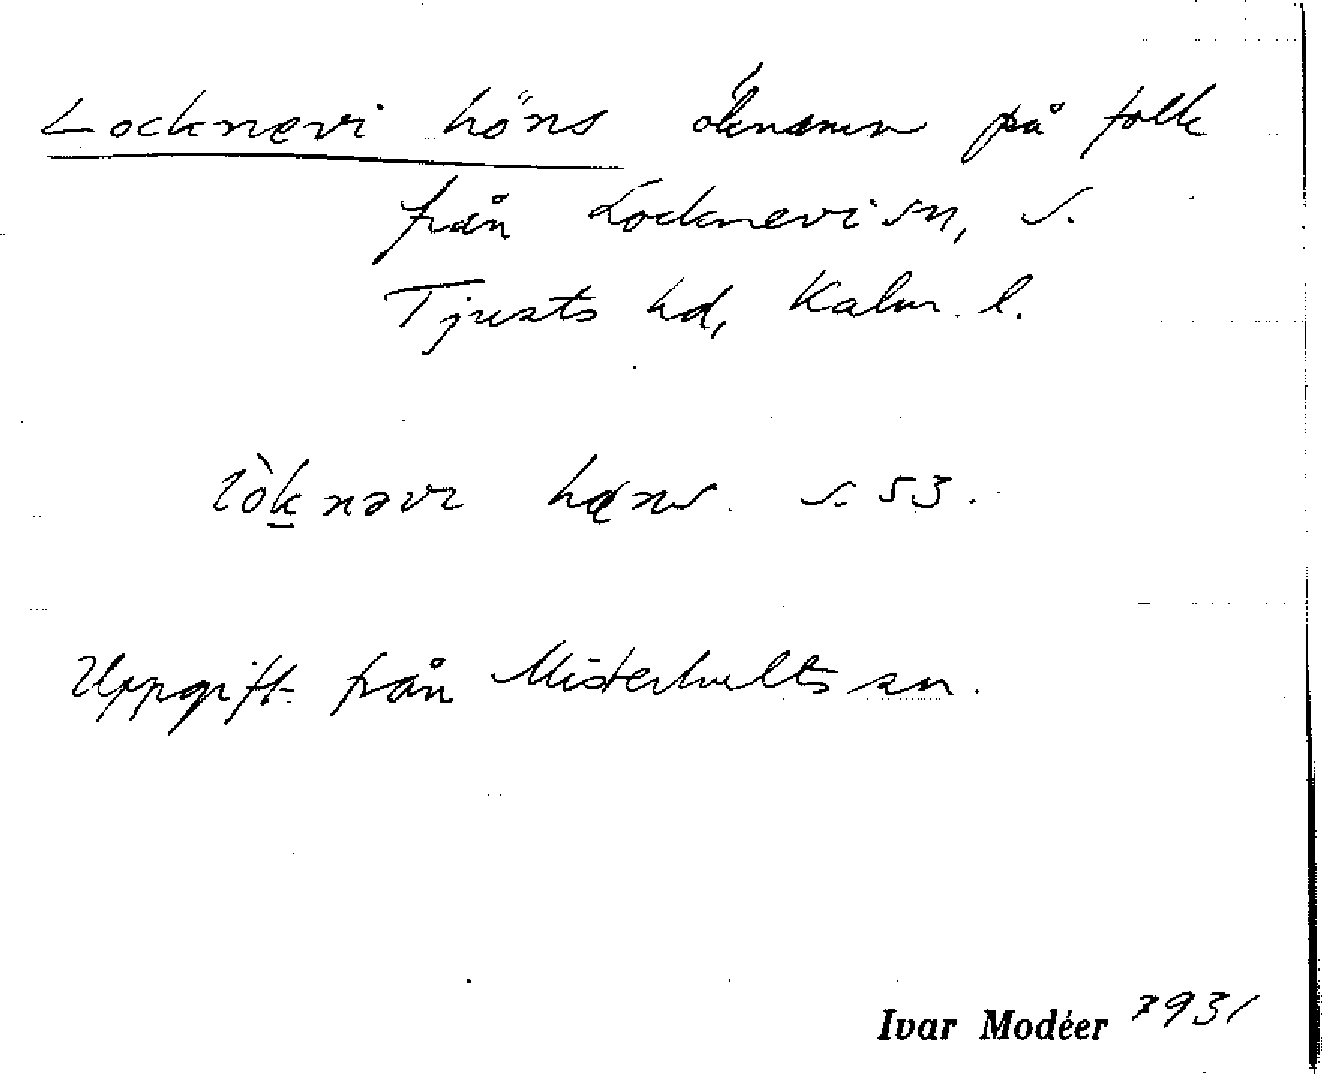 Locknevi höns öknamn på folk
från Locknevi sn, S.
Tjusts hd, Kalm. l.
lòk̲nəvı hæns. s. 53.
Uppgift från Misterhults sn.
Ivar Modéer 1931